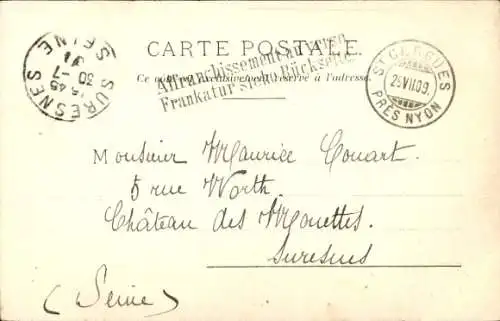 CARTE POSTALE.
Ce côté est exclusivement réservé à l'adresse.
Affranchissement au verso
Frankatur siehe Rückseite
SURESNES
15 45
30 -7
SEINE
ST CERGUES
29 VII 09
PRÈS NYON
Monsieur Maurice Couart.
5 rue Worth.
Château des Mouettes.
Suresnes
(Seine)